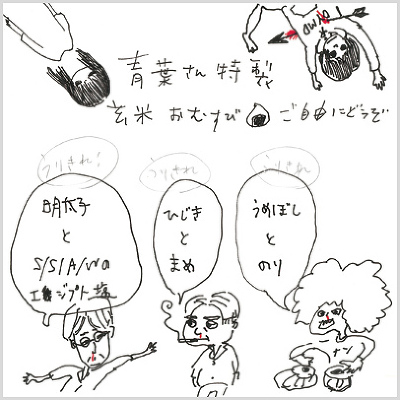 青葉さん特製
玄米おむすび ご自由にどうぞ
うりきれ!
うりきれ
うりきれ
明太子
と
ひじき
と
まめ
うめぼし
と
のり